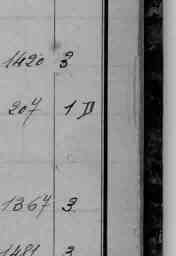 1420 3
207 1 D
1367 3
1481 3